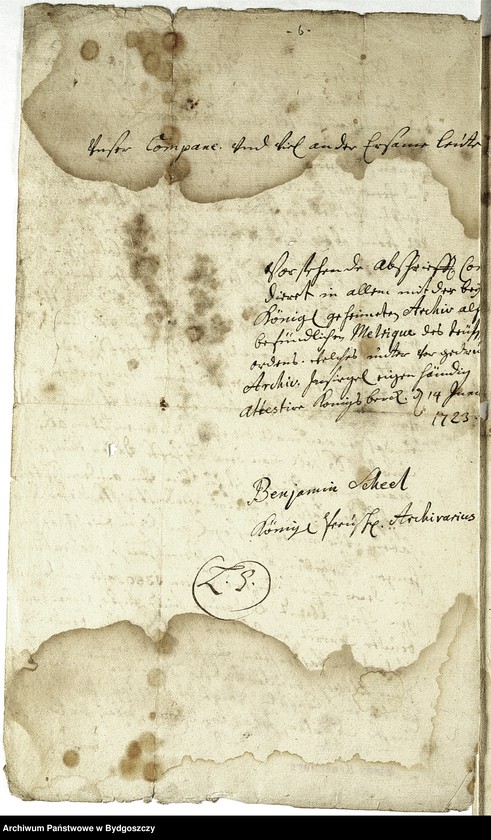 -6-
Unser Compane. Und viel ander Ersame leüte
Vorstehende Abschrifft Co
dieret in allem mit der bey
Königl geheimten Archiv al
befindlichen Metrique des teüt
ordens. welches unter vorgedru
Archiv. Insiegel eigenhändig
Attestire Königsberg. d 14 Jun
1723
Benjamin Scheel
Königl Preüß. Archivarius
L. S.
Archiwum Państwowe w Bydgoszczy